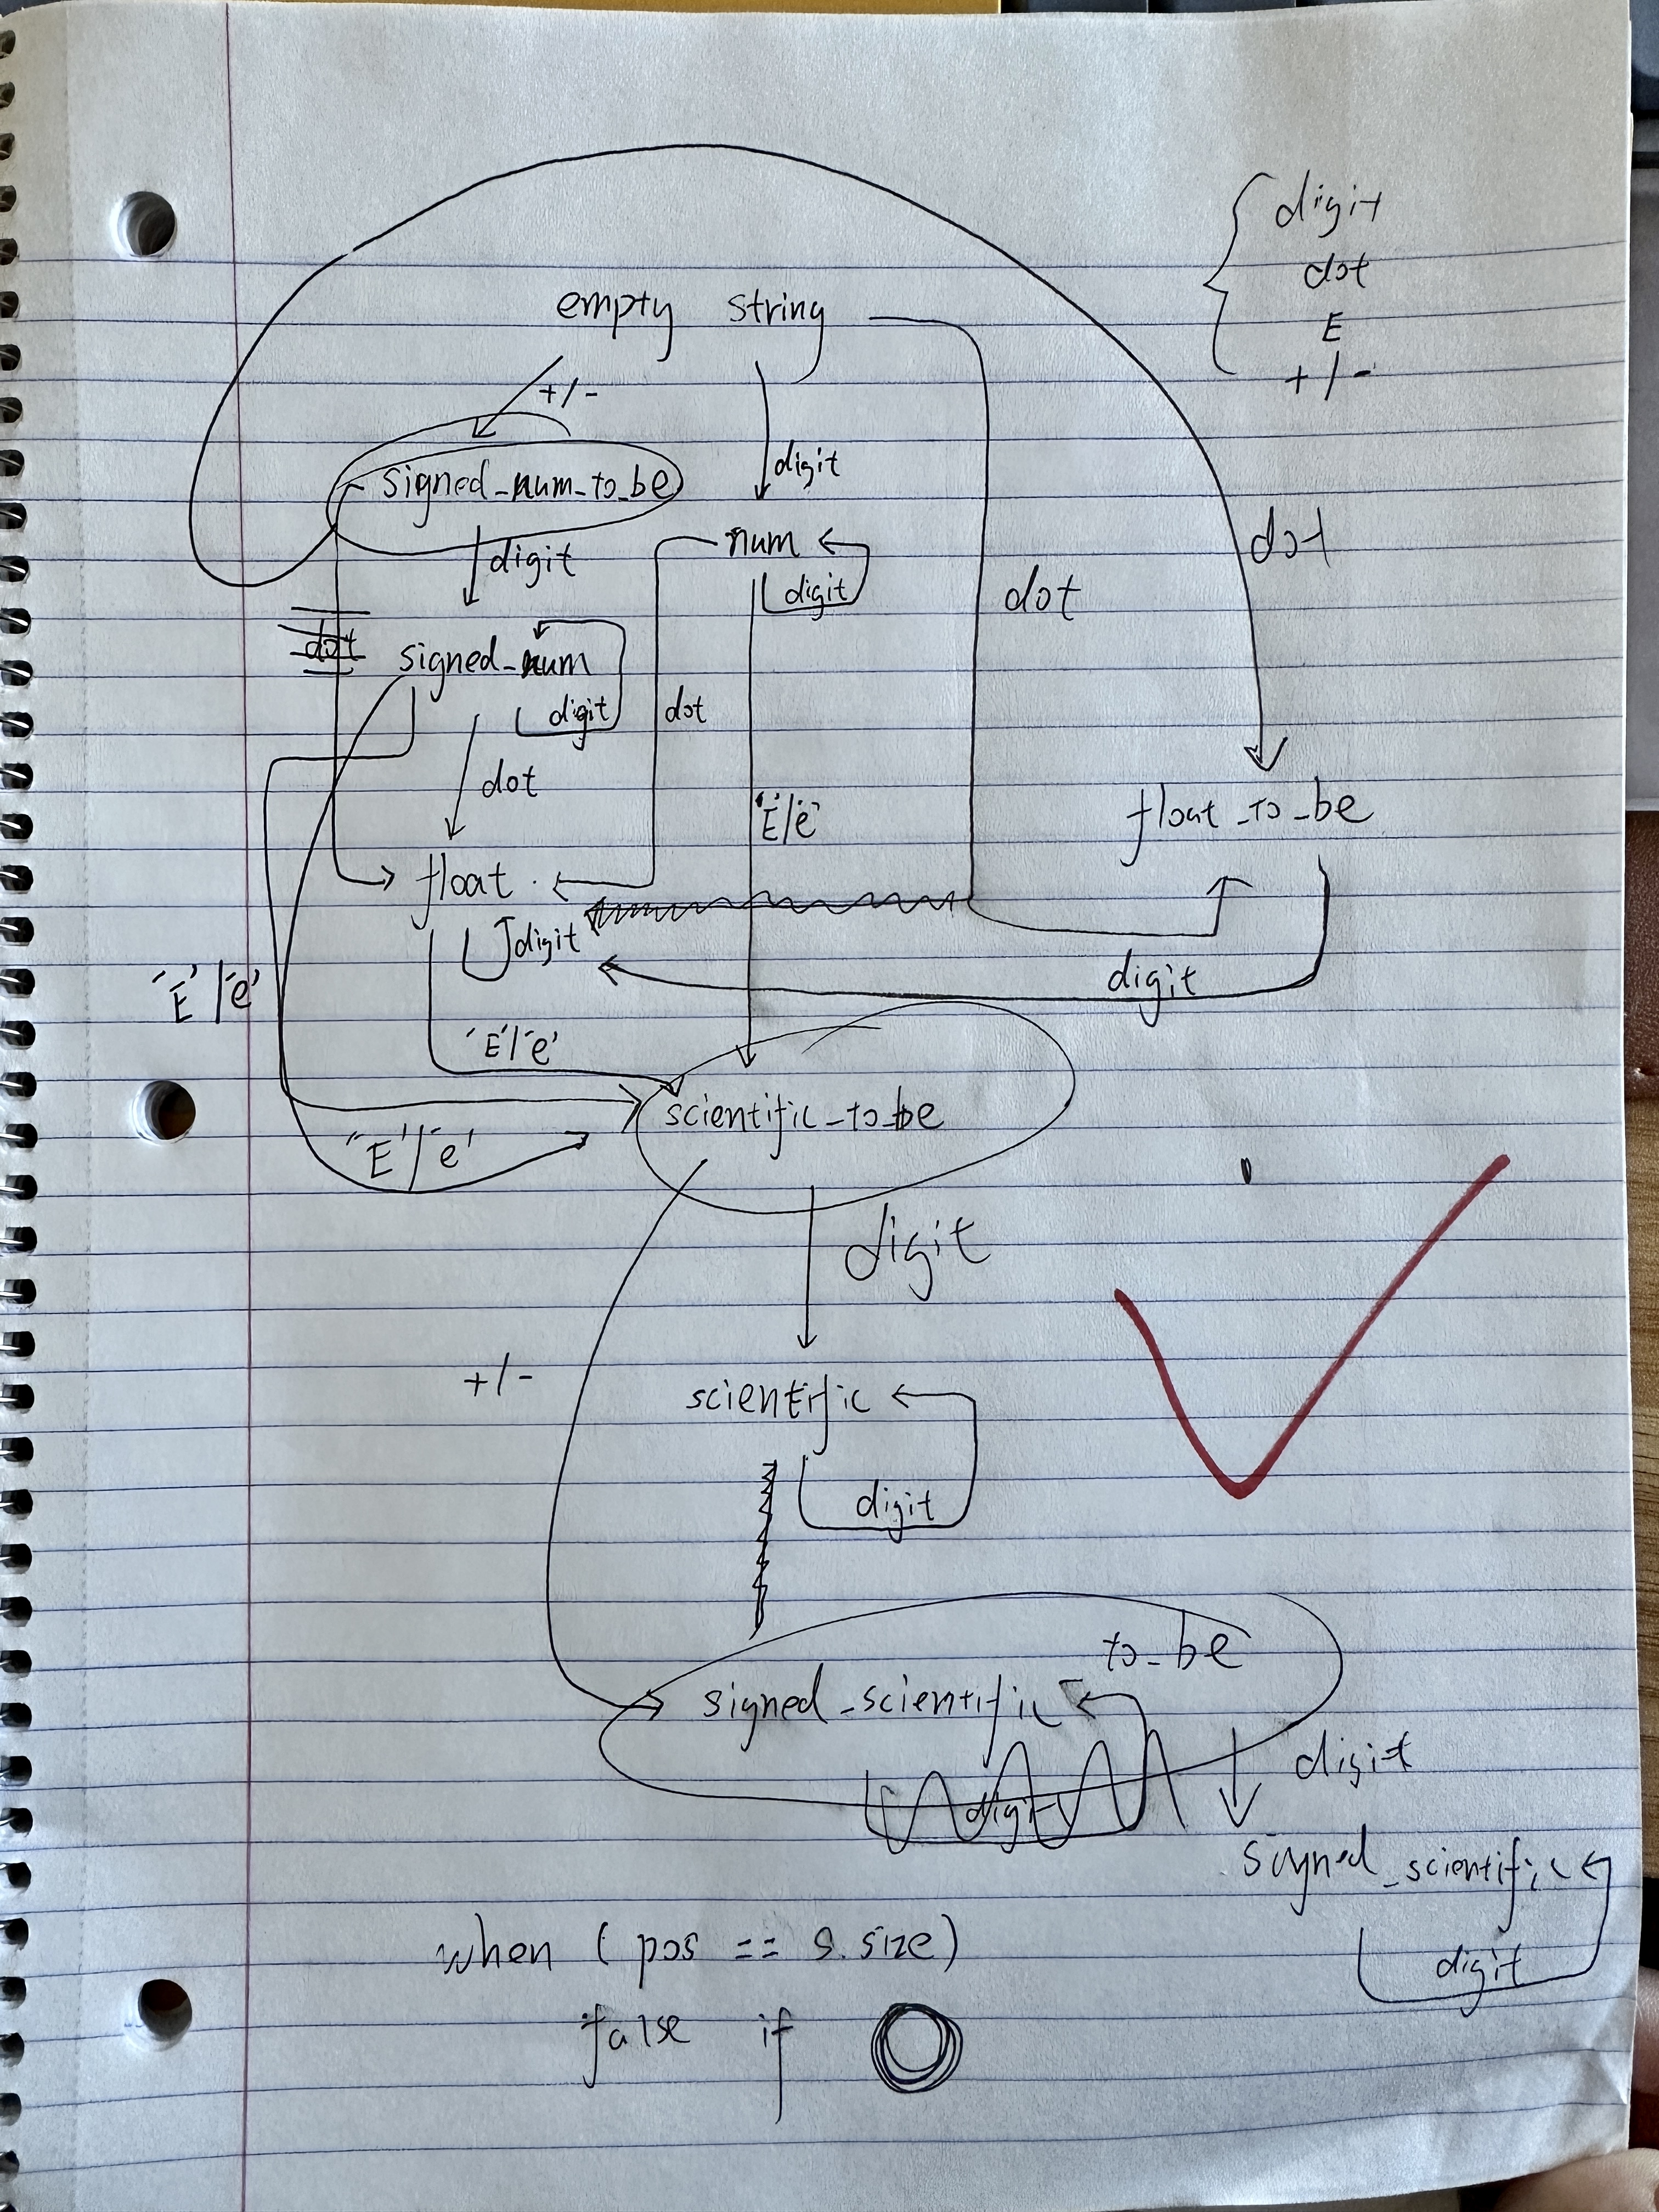 digit
dot
E
+/-
empty string
+/-
digit
signed_num_to_be
num
digit
dot
digit
dot
dot
signed_num
digit
dot
dot
'E'/'e'
float_to_be
float
digit
digit
'E'/'e'
'E'/'e'
scientific_to_be
'E'/'e'
digit
+/-
scientific
digit
to_be
signed_scientific
digit
digit
signed_scientific
digit
when (pos == s.size)
false if